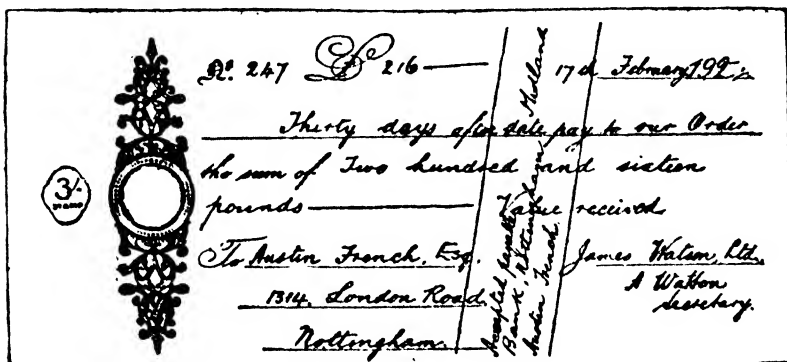 No. 247 £ 216 —— 17th February 192
Thirty days after date pay to our Order
the sum of Two hundred and sixteen
pounds —— Value received
To Austin French, Esq. James Watson, Ltd.
1314, London Road, A Watson
Nottingham. Secretary.
3/-
Accepted payable at Midland
Bank, Nottingham
Austin French.